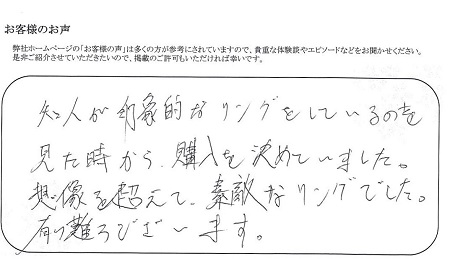 お客様のお声
弊社ホームページの「お客様の声」は多くの方が参考にされていますので、貴重な体験談やエピソードなどをお聞かせください。
是非ご紹介させていただきたいので、掲載のご許可もいただければ幸いです。
知人が印象的なリングをしているのを
見た時から、購入を決めていました。
想像を超えて、素敵なリングでした。
有り難うございます。